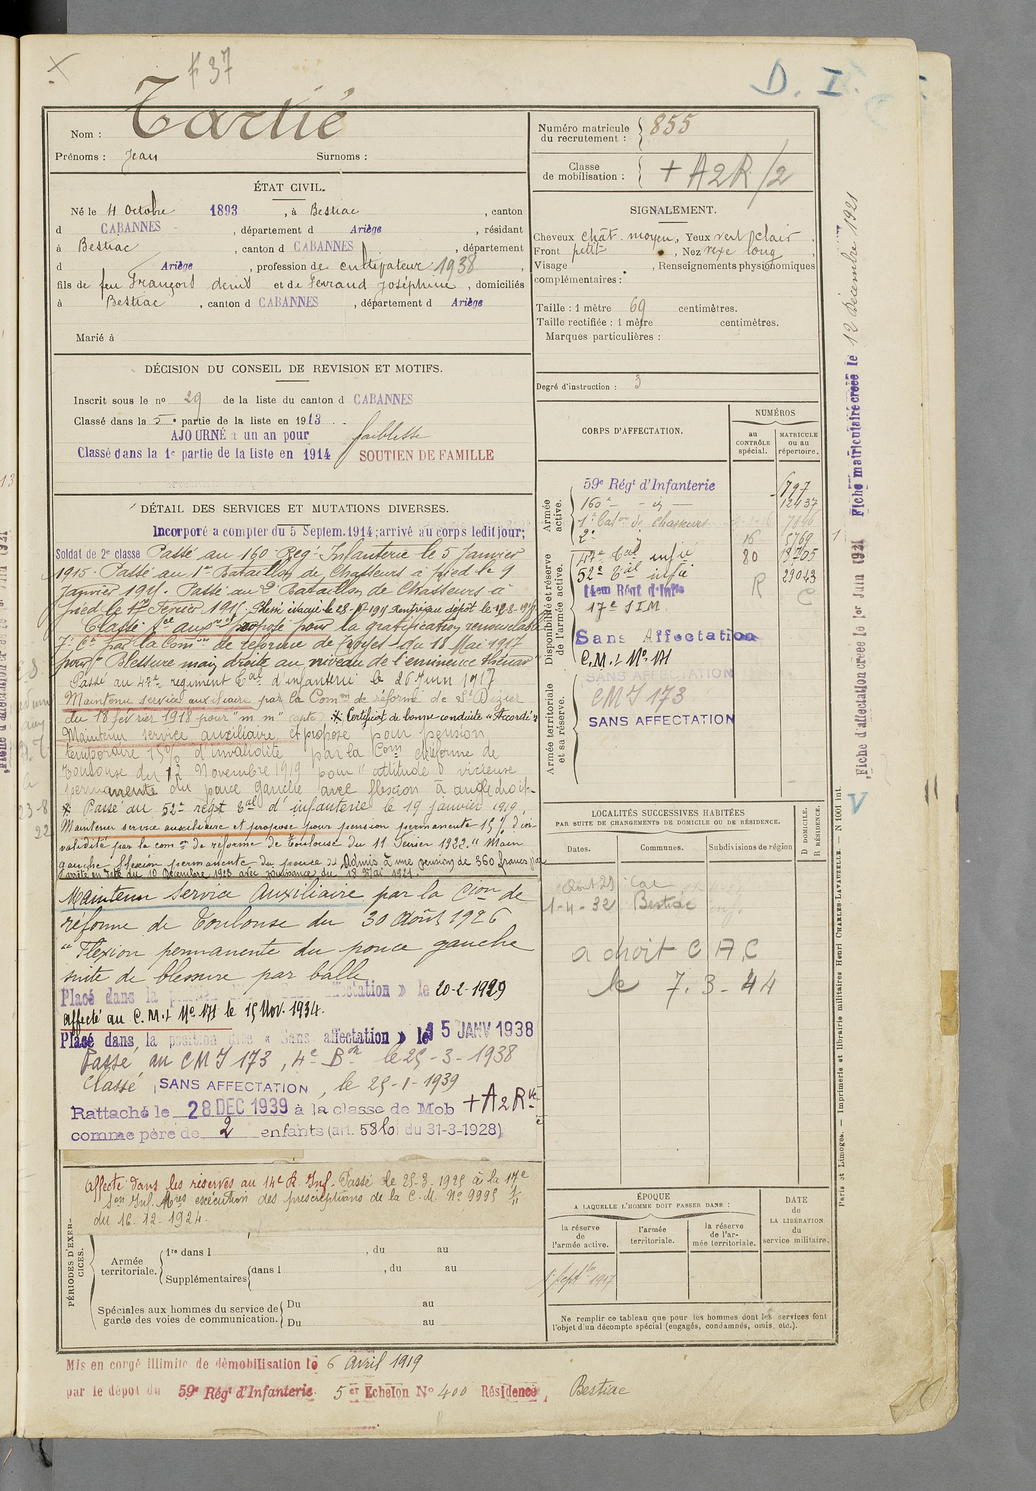 F 37
D. I.
Nom : Tartié
Prénoms : Jean Surnoms :
Numéro matricule du recrutement : 855
Classe de mobilisation : + A2R/2
ÉTAT CIVIL.
Né le 4 Octobre 1893, à Bestiac, canton
d CABANNES, département d Ariège, résidant
à Bestiac, canton d CABANNES, département
d Ariège, profession de cultivateur 1938
fils de feu François denis et de Ferrand Joséphine, domiciliés
à Bestiac, canton d CABANNES, département d Ariège
Marié à
SIGNALEMENT.
Cheveux chât. moyen, Yeux vert clair
Front petit, Nez rexe long,
Visage , Renseignements physionomiques
complémentaires :
Taille : 1 mètre 69 centimètres.
Taille rectifiée : 1 mètre centimètres.
Marques particulières :
Degré d'instruction : 3
DÉCISION DU CONSEIL DE REVISION ET MOTIFS.
Inscrit sous le no 29 de la liste du canton d CABANNES
Classé dans la 5e partie de la liste en 1913
AJOURNÉ à un an pour faiblesse
Classé dans la 1e partie de la liste en 1914 SOUTIEN DE FAMILLE
DÉTAIL DES SERVICES ET MUTATIONS DIVERSES.
Incorporé a compter du 5 Septem. 1914; arrivé au corps ledit jour;
Soldat de 2e classe Passé au 160 Reg. Infanterie le 5 Janvier
1915. Passé au 1er Bataillon de Chasseurs à pied le 9
Janvier 1915. Passé au 2e Bataillon de Chasseurs à
pied le 1er Février 1915.
Classé Sce auxre proposé pour la gratification renouvelable
par la Comon de réforme de Troyes du 18 Mai 1917
pour "Blessure main droite au niveau de l'eminence thénar"
Passé au 42e regiment tal d'infanterie le 26 Juin 1917
Maintenu service auxiliaire par la Comon de réforme de St Dizier
du 18 février 1918 pour "m m" apte * Certificat de bonne conduite "Accordé"
Maintenu service auxiliaire et proposé pour pension
temporaire 15% d'invalidité par la Com reforme de
Toulouse du 12 Novembre 1919 pour "attitude vicieuse
permanente du pouce gauche avec flexion à angle droit.
* Passé au 52e régt tal d'infanterie le 19 janvier 1919.
Maintenu service auxiliaire et proposé pour pension permanente 15% d'in
validité par la comon de réforme de Toulouse du 11 Février 1922. "Main
gauche: flexion permanente du pouce" Admis à une pension de 360 francs par
arrêté en date du 10 Décembre 1923 avec jouissance du 18 Mai 1921.
Maintenu Service Auxiliaire par la Cion de
réforme de Toulouse du 30 Août 1926
"Flexion permanente du pouce gauche
suite de blessure par balle
Placé dans la position affectation » le 20-2-1929
affecté au C.M.I No 171 le 15 Nov. 1934.
Placé dans la position dite « Sans affectation » le 15 JANV 1938
Passé au CMI 173, 4e Bon le 25-3-1938
Classé SANS AFFECTATION, le 25-1-1939
Rattaché le 28 DEC 1939 à la classe de Mob + A2R
comme père de 2 enfants (art. 58 du 31-3-1928)
CORPS D'AFFECTATION.
NUMÉROS
au CONTRÔLE spécial.
MATRICULE ou au répertoire.
Armée active.
59e Régt d'Infanterie 797
160e - d - 12437
1er Baton de Chasseurs
2e 16 5769
Disponibilité et réserve de l'armée active.
42e tal inftie 80
52e tal inftie R 29043
14em Régt d'Infie C
17e SIM
Sans Affectation
C.M.I No 171
Armée territoriale et sa réserve.
SANS AFFECTATION
CMI 173
SANS AFFECTATION
LOCALITÉS SUCCESSIVES HABITÉES
PAR SUITE DE CHANGEMENTS DE DOMICILE OU DE RÉSIDENCE.
Dates. Communes. Subdivisions de région D DOMICILE. R RÉSIDENCE.
1-4-32 Bestiac
a droit C.A.C
le 7.3.44
ÉPOQUE
A LAQUELLE L'HOMME DOIT PASSER DANS :
la réserve de l'armée active.
l'armée territoriale.
la réserve de l'armée territoriale.
DATE de LA LIBÉRATION du service militaire.
1er Septbre 1917
Ne remplir ce tableau que pour les hommes dont les services font
l'objet d'un décompte spécial (engagés, condamnés, omis, etc.).
PÉRIODES D'EXERCICES.
Affecté dans les réserves au 14e R. Inf. Passé le 25-3-1925 à la 17e
Son Inf. Mres exécution des prescriptions de la C.M. No 9995
du 16.12.1924.
Armée territoriale. 1re dans l , du au
Supplémentaires dans l , du au
Spéciales aux hommes du service de garde des voies de communication. Du au
Du au
Mis en congé illimité de démobilisation le 6 Avril 1919
par le dépôt du 59e Régt d'Infanterie 5er Echelon No 400 Résidence, Bestiac
Fiche matriculaire créée le 12 décembre 1921
Fiche d'affectation créée le 1er Juin 1921
Paris et Limoges. — Imprimerie et librairie militaires Henri CHARLES-LAVAUZELLE. — N 1001 int.